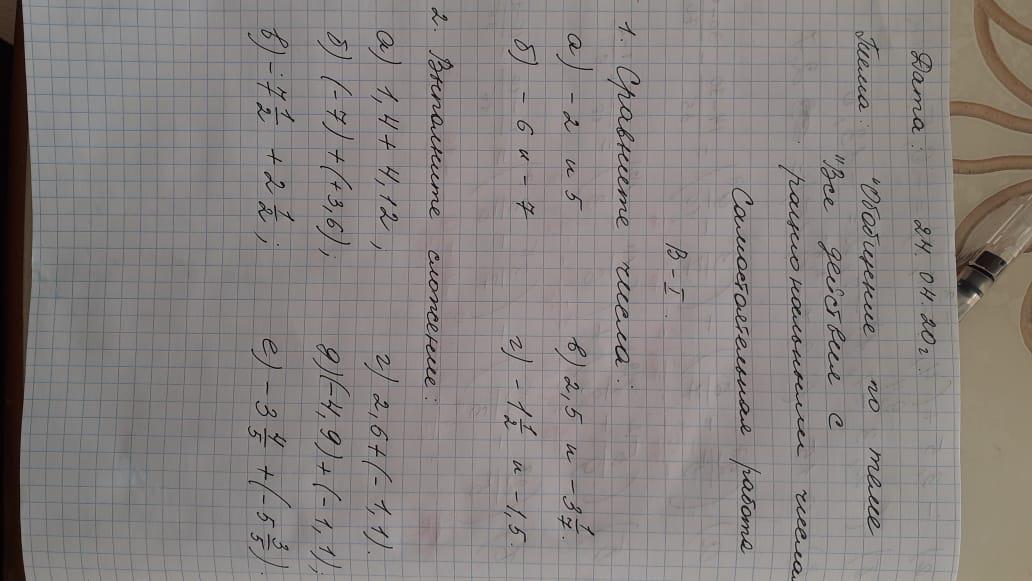 Дата: 24.04.20г.
Тема: "Обобщение по теме
"Все действия с
рациональными числа
Самостоятельная работа
В-I.
1. Сравните числа:
а) -2 и 5 в) 2,5 и -3 1/7.
б) -6 и -7 г) -1 1/2 и -1,5
2. Выполните сложение:
а) 1,4 + 4,12; г) 2,6 + (-1,1).
б) (-7) + (+3,6); д) (-4,9) + (-1,1);
в) -7 1/2 + 2 1/2; е) -3 4/5 + (-5 3/5).